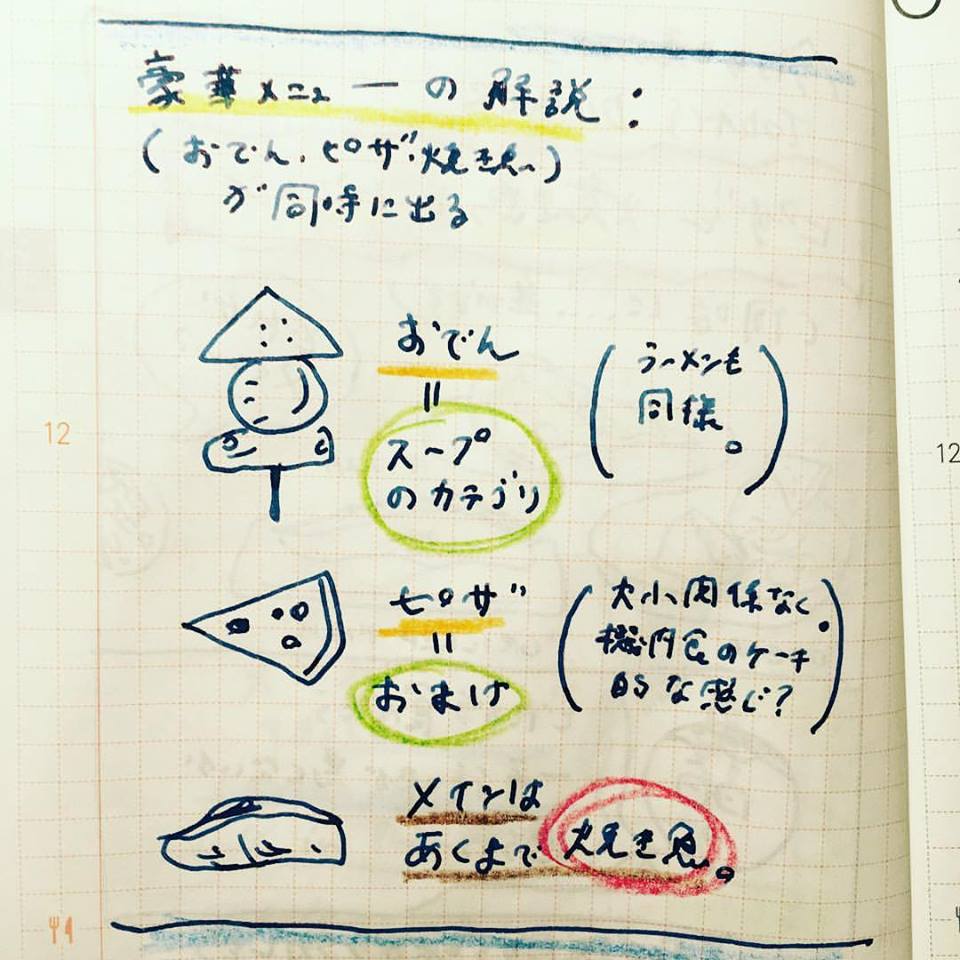 豪華メニューの解説:
(おでん、ピザ、焼き魚)
が同時に出る
おでん
=
スープ
のカテゴリ
(ラーメンも
同様。)
ピザ
=
おまけ
(大小関係なく、
機内食のケーキ
的な感じ?)
メインは
あくまで焼き魚。
12
12